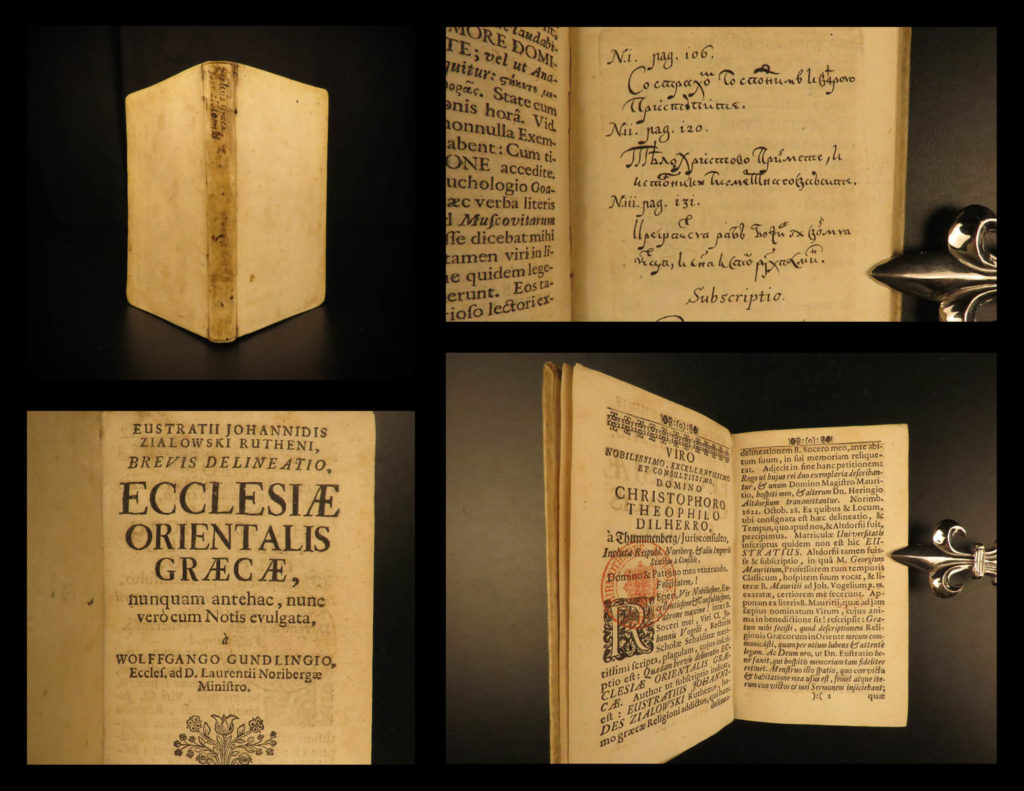 laudabi-
MORE DOMI-
TE; vel ut Ana-
quitur:
State cum
onis horâ. Vid.
nonnulla Exem-
abent: Cum ti-
ONE accedite.
uchologio Goa-
æc verba literis
d Muscovitarum
sse dicebat mihi
tamen viri in li-
ne quidem lege-
erunt. Eos ta-
rioso lectori ex-
N.i. pag. 106.
N.ii. pag. 120.
N.iii. pag. 131.
Subscriptio.
EUSTRATII JOHANNIDIS
ZIALOWSKI RUTHENI,
BREVIS DELINEATIO,
ECCLESIÆ
ORIENTALIS
GRÆCÆ,
nunquam antehac, nunc
vero cum Notis evulgata,
à
WOLFFGANGO GUNDLINGIO,
Eccles. ad D. Laurentii Noribergæ
Ministro.
VIRO
NOBILISSIMO, EXCELLENTISSIMO
ET CONSULTISSIMO,
DOMINO
CHRISTOPHORO
THEOPHILO
DILHERRO,
à Thummenberg / Jurisconsulto,
Inclutæ Reipubl. Noriberg. & aliis Imperii
Statibus à Consiliis,
Domino & Patrono meo venerando,
Felicitatem!
REperi, Vir Nobilissime, Ex-
cellentissime & Consultissime,
Patrone maxime! inter B.
Soceri mei, Viri Cl. Jo-
hannis Vogelii, Rectoris
Scholæ Sebaldinæ meri-
tissimi scripta, plagulam, cujus inscri-
ptio est: Quædam brevis delineatio EC-
CLESIÆ ORIENTALIS GRÆ-
CÆ. Author ut subscriptio indicat,
est: EUSTRATIUS JOHANNI-
DES ZIALOWSKI Ruthenus, ho-
mo græcæ Religioni addictus, qui hanc
delinea-
delineationem B. Socero meo, ante abi-
tum suum, in sui memoriam relique-
rat. Adjecit in fine hanc petitionem:
Rogo ut hujus rei duo exemplaria describan-
tur, & unum Domino Magistro Mauri-
tio, hospiti meo, & alterum Dn. Heringio
Altdorfium transmittantur. Norimb.
1621. Octob. 28. Ex quibus & Locum,
ubi consignata est hæc delineatio, &
Tempus, quo apud nos, & Altdorfii fuit,
percipimus. Matriculæ Universitatis
inscriptus quidem non est hic EU-
STRATIUS. Altdorfii tamen fuis-
se & subscriptio, in quâ M. Georgium
Mauritium, Professorem tum temporis
Classicum, hospitem suum vocat, & li-
teræ B. Mauritii ad Joh. Vogelium p. m.
exaratæ, certiorem me fecerunt. Ap-
ponam ex literis B. Mauritii, quæ ad jam
sæpius nominatum Virum, cujus ani-
ma in benedictione sit! rescripsit: Gra-
tum mihi fecisti, quod descriptionem Reli-
gionis Græcorum in Oriente mecum com-
municâsti, quam per otium lubens & attentè
legam. Ac Deum oro, ut Dn. Eustratio be-
nè faxit, qui hospitis memoriam tam fideliter
retinet. Menstruo illo spatio, quo convictu
& habitatione mea usus est, semel atque ite-
rum convictores mei Sermonem injiciebant;
):( 2
quæ